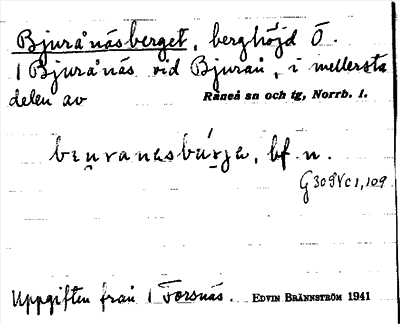 Bjuränäsberget, berghöjd Ö.
1 Bjurånäs vid Bjurån, i mellersta
delen av Råneå sn och tg, Norrb. l.
bf n.
G3098c1,109
Uppgiften från 1 Forsnäs. EDVIN BRÄNNSTRÖM 1941